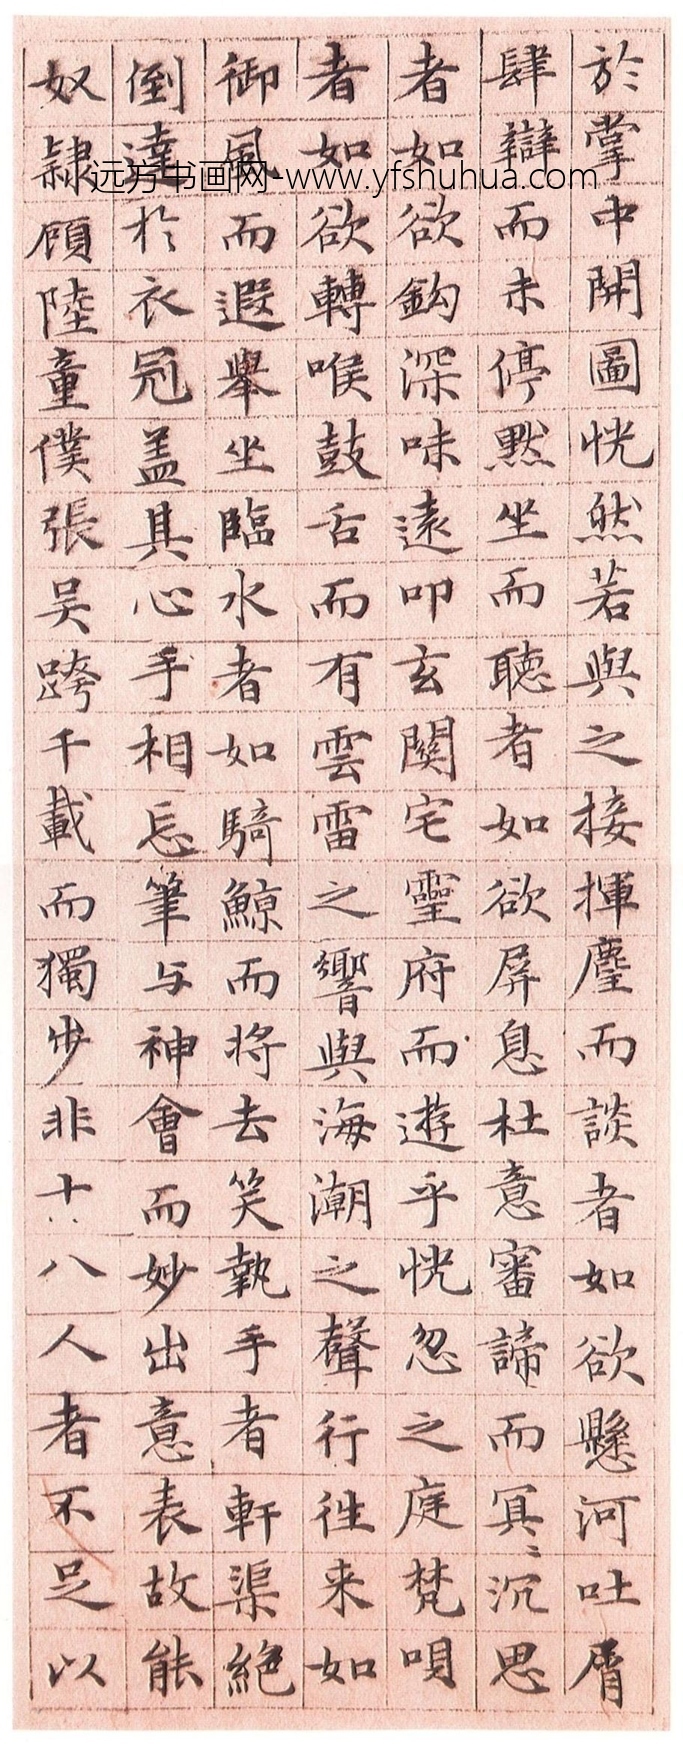 於掌中開圖恍然若與之接揮麈而談者如欲懸河吐屑
肆辯而未停默坐而聽者如欲屏息杜意審諦而冥〻沉思
者如欲鈎深味遠叩玄關宅靈府而遊乎恍忽之庭梵唄
者如欲轉喉鼓舌而有雲雷之響與海潮之聲行往来如
御風而遐舉坐臨水者如騎鯨而将去笑執手者軒渠絶
倒達於衣冠盖其心手相忘筆与神會而妙出意表故能
奴隸顧陸童僕張吴跨千載而獨步非十八人者不足以
远方书画网-www.yfshuhua.com